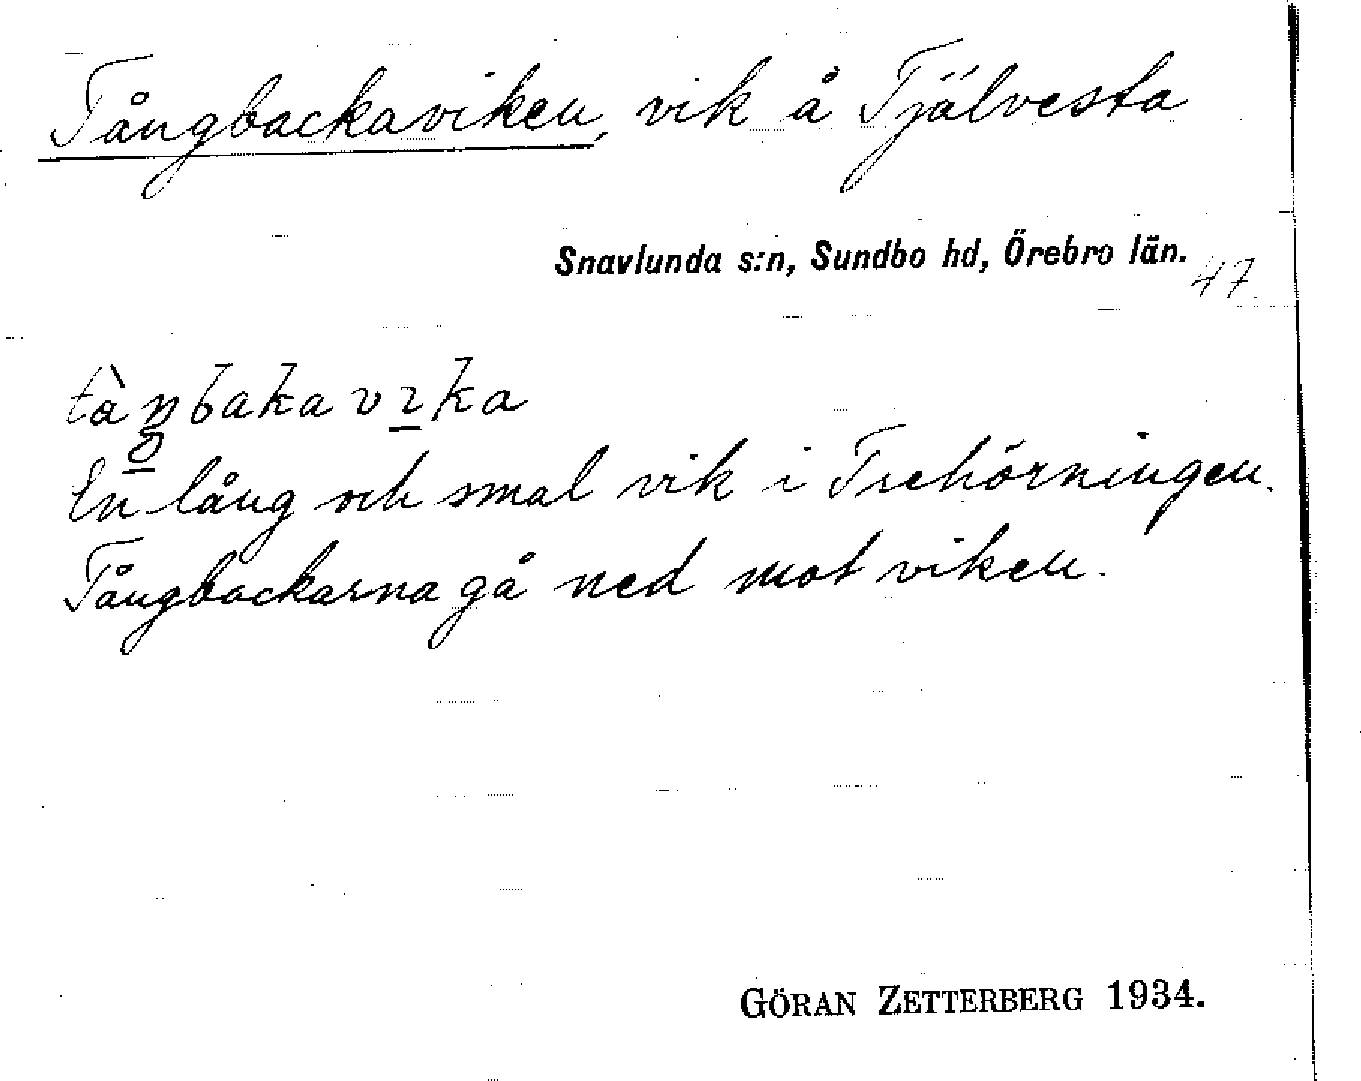 Tångbackaviken, vik å Tjälvesta
Snavlunda s:n, Sundbo hd, Örebro län.
47
En lång och smal vik i Trehörningen.
Tångbackarna gå ned mot viken.
GÖRAN ZETTERBERG 1934.